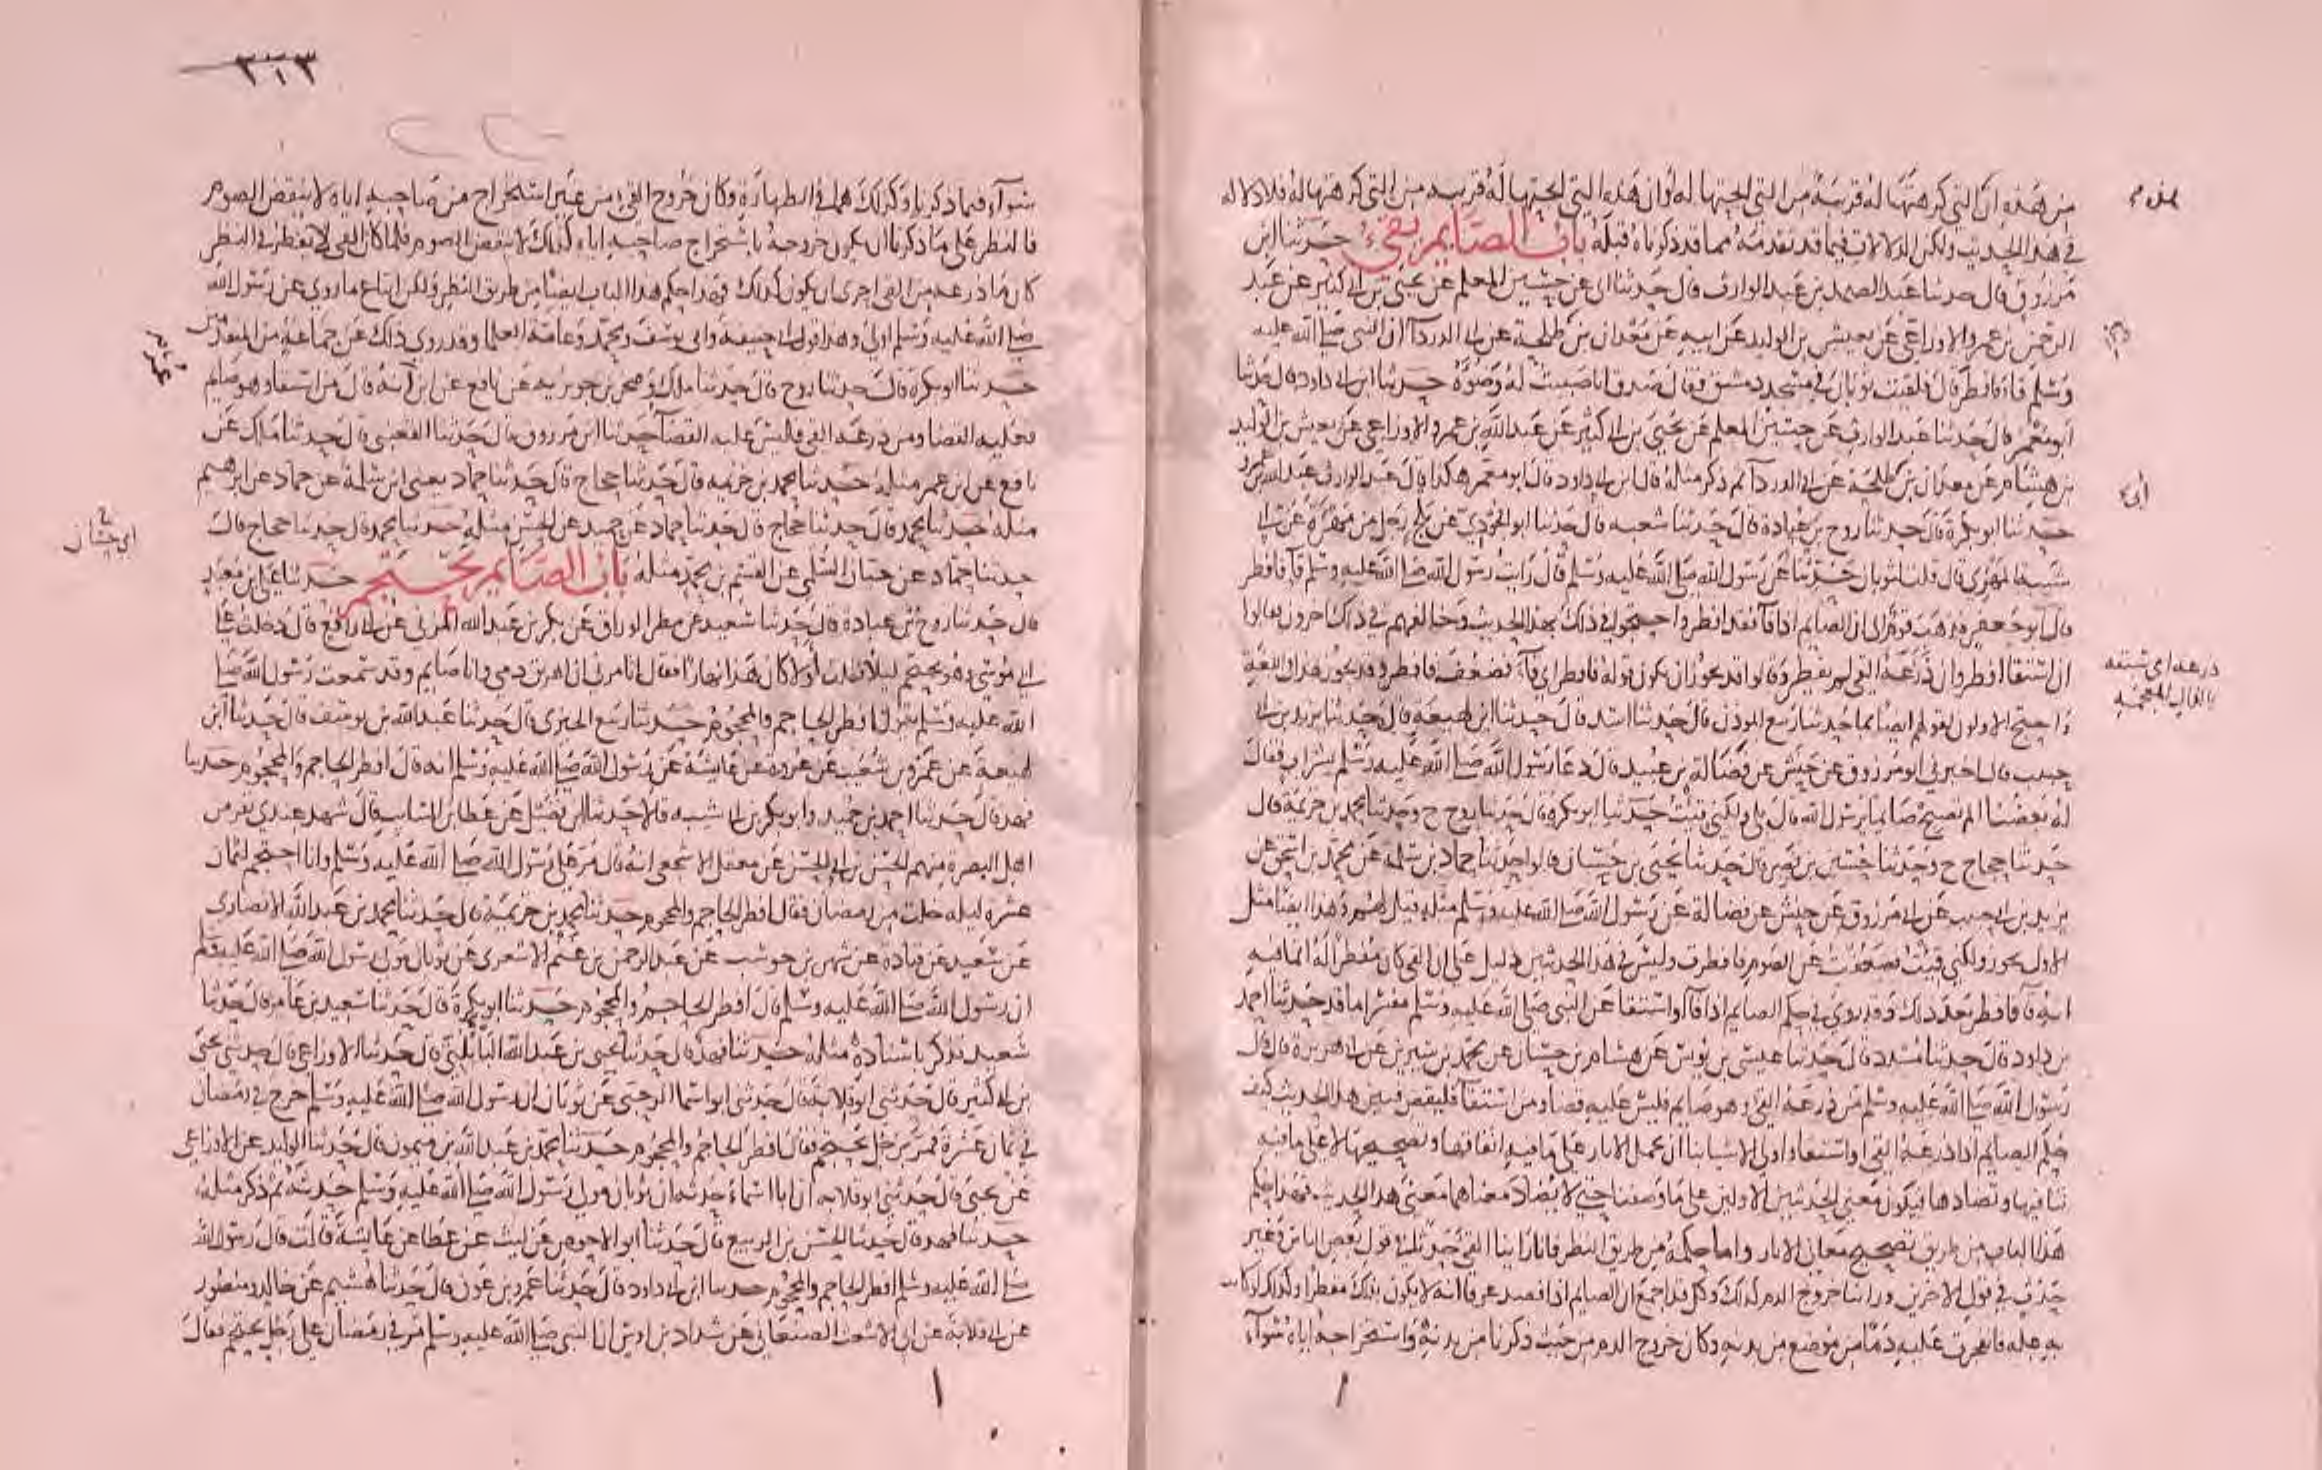 من هذه ان التي كرهتها له قريبة من التي ابحتها له وان هذه التي ابحتها له قريبة من التي كرهتها له فلا دلالة
في هذا الحديث ولكن الدلالات فيما قد تقدمه مما قد ذكرناه قبله باب الصايم يقيء حدثنا ابن
مرزوق قال حدثنا عبد الصمد بن عبد الوارث قال حدثنا ابي عن حسين المعلم عن يحيى بن ابي كثير عن عبد
الرحمن بن عمرو الاوزاعي عن يعيش بن الوليد عن ابيه عن معدان بن طلحة عن ابي الدردآ ان النبي صلى الله عليه
وسلم قاء فافطر قال فلقيت ثوبان في مسجد دمشق فقال صدق انا صببت له وضوءه حدثنا ابن ابي داود قال حدثنا
ابو معمر قال حدثنا عبد الوارث عن حسين المعلم عن يحيى بن ابي كثير عن عبد الله بن عمرو الاوزاعي عن يعيش بن الوليد
بن هشام عن معدان بن طلحة عن ابي الدردآ ثم ذكر مثله قال ابن ابي داود قال ابو معمر هكذا قال عبد الوارث عبد الله بن عمرو
حدثنا ابو بكرة قال حدثنا روح بن عبادة قال حدثنا شعبه قال حدثنا ابو الجودي عن بلج رجل من مهرة عن ابي
شيبة المهري قال قلنا لثوبان حدثنا عن رسول الله صلى الله عليه وسلم قال رايت رسول الله صلى الله عليه وسلم قآ فافطر
قال ابو جعفر فذهب قوم الى ان الصايم اذا قآ فقد افطر واحتجوا في ذلك بهذا الحديث وخالفهم في ذلك اخرون فقالوا
ان استقا افطر وان ذرعه القي لم يفطر وقالوا قد يجوز ان يكون قوله فافطر اي قآ فضعف فافطر وقد يجوز هذا في اللغة
واحتج الاولون لقولهم ايضا بما حدثنا ربيع الموذن قال حدثنا اسد قال حدثنا ابن لهيعه قال حدثنا يزيد بن ابي
حبيب قال اخبرني ابو مرزوق عن حنش عن فضالة بن عبيد قال دعا رسول الله صلى الله عليه وسلم بشراب فقال
له بعضنا الم تصبح صايما يرسول الله قال بلى ولكني قيئت حدثنا ابو بكرة قال حدثنا روح ح وحدثنا محمد بن خزيمة قال
حدثنا حجاج ح وحدثنا حسين بن نصر قال حدثنا يحيى بن حسان قالوا حدثنا حماد بن سلمة عن محمد بن اسحق عن
يزيد بن ابي حبيب عن ابي مرزوق عن حنش عن فضالة عن رسول الله صلى الله عليه وسلم مثله قيل لهم وهذا ايضا مثل
الاول يجوز ولكني قيئت فضعفت عن الصوم فافطرت وليس في هذا الحديثين دليل على ان القي كان مفطرا له انما فيه
انه قآ فافطر بعد ذلك وقد روي في حكم الصايم اذا قآ او استقا عن النبي صلى الله عليه وسلم مفسرا ما قد حدثنا احمد
بن داود قال حدثنا مسدد قال حدثنا عيسى بن يونس عن هشام بن حسان عن محمد بن سيرين عن ابي هريرة قال قال
رسول الله صلى الله عليه وسلم من ذرعه القي وهو صايم فليس عليه قضا ومن استقآ فليقض فبين هذا الحديث كيف
حكم الصايم اذا ذرعه القي واستقا واولى الاشيا بنا ان نحمل الاثار على ما فيه اتفاقها وتصحيحها لا على ما فيه
تنافيها وتضادها فيكون معنى الحديثين الاولين على ما وصفنا حتى لا يضاد معناهما معنى هذا الحديث فهذا حكم
هذا الباب من طريق تصحيح معاني الاثار واما حكمه من طريق النظر فانا راينا القي حدثا في قول بعض الناس وغير
حدث في قول الاخرين وراينا خروج الدم كذلك وكل قد اجمع ان الصايم اذا فصد عرقا انه لا يكون بذلك مفطرا وكذلك لو كانت
به علة فانفجرت عليه دما من موضع من بدنه وكان خروج الدم من حيث ذكرنا من بدنه واستخراجه اياه سوآء
ذرعه اي سبقه
٣١٣
سوآء فيما ذكرنا وكذلك هما في الطهارة وكان خروج القيء من غير استخراج من صاحبه اياه لا ينقض الصوم
فالنظر على ما ذكرنا ان يكون خروجه باستخراج صاحبه اياه كذلك لا ينقض الصوم فلما كان القي لا يفطر في النظر
كان ما ذرعه من القي احرى ان يكون كذلك فهذا حكم هذا الباب ايضا من طريق النظر ولكن اتباع ما روي عن رسول الله
صلى الله عليه وسلم اولى وهذا قول ابي حنيفة وابي يوسف ومحمد وعامة العلما وقد روي ذلك عن جماعة من المتقدمين
حدثنا ابو بكرة قال حدثنا روح قال حدثنا ملك وصخر بن جويرية عن نافع عن ابن عمر انه قال من استقا وهو صايم
فعليه القضا ومن ذرعه القي فليس عليه القضآ حدثنا ابن مرزوق قال حدثنا القعنبي قال حدثنا ملك عن
نافع عن ابن عمر مثله حدثنا محمد بن خزيمه قال حدثنا حجاج قال حدثنا حماد يعني ابن سلمة عن حماد عن ابرهيم
مثله حدثنا محمد قال حدثنا حجاج قال حدثنا حماد عن حميد عن الحسن مثله حدثنا محمد قال حدثنا حجاج قال
حدثنا حماد عن حبان السلمي عن القسم بن محمد مثله باب الصايم يحتجم حدثنا علي بن معبد
قال حدثنا روح بن عبادة قال حدثنا سعيد عن مطر الوراق عن بكر بن عبد الله المزني عن ابي رافع قال دخلت على
ابي موسى وهو يحتجم ليلا فقلت لولا كان هذا نهارا فقال اتامرني ان اهريق دمي وانا صايم وقد سمعت رسول الله صلى
الله عليه وسلم يقول افطر الحاجم والمحجوم حدثنا ربيع الجيزي قال حدثنا عبد الله بن يوسف قال حدثنا ابن
لهيعة عن عمرو بن شعيب عن عروة عن عايشة عن رسول الله صلى الله عليه وسلم انه قال افطر الحاجم والمحجوم حدثنا
فهد قال حدثنا احمد بن حميد وابو بكر بن ابي شيبه قالا حدثنا ابن فضيل عن عطا بن السايب قال شهد عندي نفر من
اهل البصرة منهم الحسن بن ابي الحسن عن معقل الاشجعي انه قال مر علي رسول الله صلى الله عليه وسلم وانا احتجم لثمان
عشره ليله خلت من رمضان فقال افطر الحاجم والمحجوم حدثنا محمد بن خزيمة قال حدثنا محمد بن عبد الله الانصاري
عن سعيد عن قتادة عن شهر بن حوشب عن عبد الرحمن بن غنم الاشعري عن ثوبان مولى رسول الله صلى الله عليه وسلم
ان رسول الله صلى الله عليه وسلم قال افطر الحاجم والمحجوم حدثنا ابو بكرة قال حدثنا سعيد بن عامر قال حدثنا
سعيد فذكر باسناده مثله حدثنا فهد قال حدثنا يحيى بن عبد الله البابلتي قال حدثنا الاوزاعي قال حدثني يحيى
بن ابي كثير قال حدثني ابو قلابة قال حدثني ابو اسما الرحبي عن ثوبان ان رسول الله صلى الله عليه وسلم خرج في رمضان
في ثمان عشرة فمر برجل يحتجم فقال افطر الحاجم والمحجوم حدثنا محمد بن عبد الله بن ميمون قال حدثنا الوليد عن الاوزاعي
عن يحيى قال حدثني ابو قلابه ان ابا اسماء حدثه ان ثوبان مولى رسول الله صلى الله عليه وسلم حدثه ثم ذكر مثله
حدثنا فهد قال حدثنا الحسن بن الربيع قال حدثنا ابو الاحوص عن ليث عن عطا عن عايشة قالت قال رسول الله
صلى الله عليه وسلم افطر الحاجم والمحجوم حدثنا ابن ابي داود قال حدثنا عمرو بن عون قال حدثنا هشيم عن خالد ومنصور
عن ابي قلابة عن ابي الاشعث الصنعاني عن شداد بن اوس ان النبي صلى الله عليه وسلم مر في رمضان على رجل يحتجم فقال